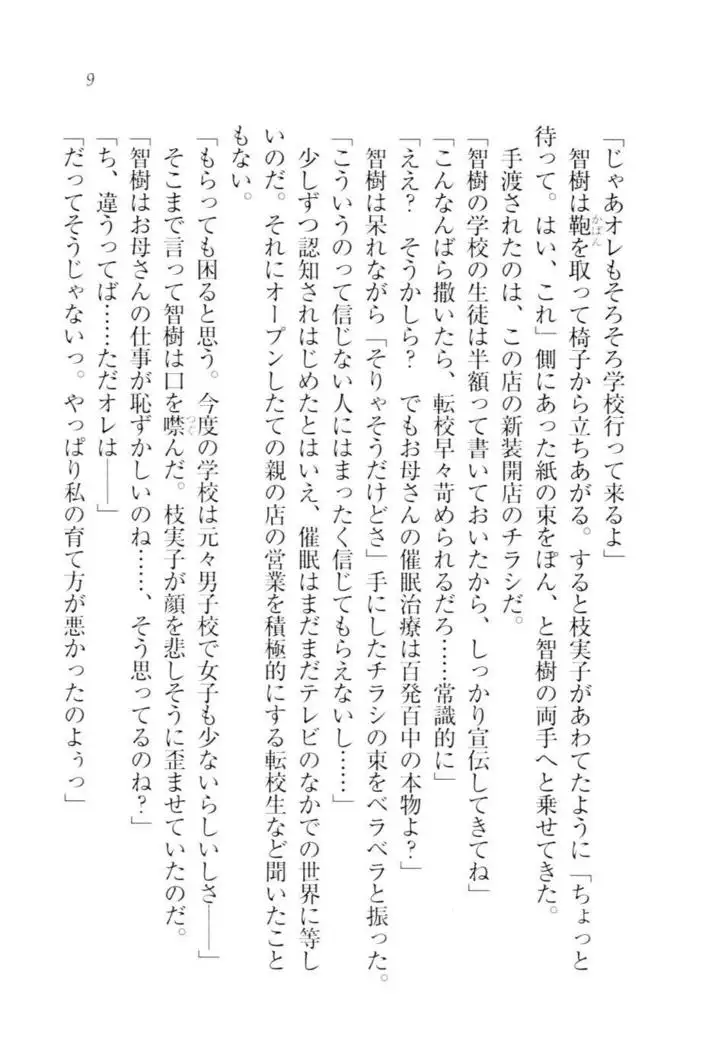 9
「じゃあオレもそろそろ学校行って来るよ」
　智樹は鞄を取って椅子から立ちあがる。すると枝実子があわてたように「ちょっと
待って。はい、これ」側にあった紙の束をぽん、と智樹の両手へと乗せてきた。
　手渡されたのは、この店の新装開店のチラシだ。
「智樹の学校の生徒は半額って書いておいたから、しっかり宣伝してきてね」
「こんなんばら撒いたら、転校早々苛められるだろ……常識的に」
「ええ？　そうかしら？　でもお母さんの催眠治療は百発百中の本物よ？」
　智樹は呆れながら「そりゃそうだけどさ」手にしたチラシの束をベラベラと振った。
「こういうのって信じない人にはまったく信じてもらえないし……」
　少しずつ認知されはじめたとはいえ、催眠はまだまだテレビのなかでの世界に等し
いのだ。それにオープンしたての親の店の営業を積極的にする転校生など聞いたこと
もない。
「もらっても困ると思う。今度の学校は元々男子校で女子も少ないらしいしさ――」
　そこまで言って智樹は口を噤んだ。枝実子が顔を悲しそうに歪ませていたのだ。
「智樹はお母さんの仕事が恥ずかしいのね……、そう思ってるのね？」
「ち、違うってば……ただオレは――」
「だってそうじゃないっ。やっぱり私の育て方が悪かったのよぅっ」